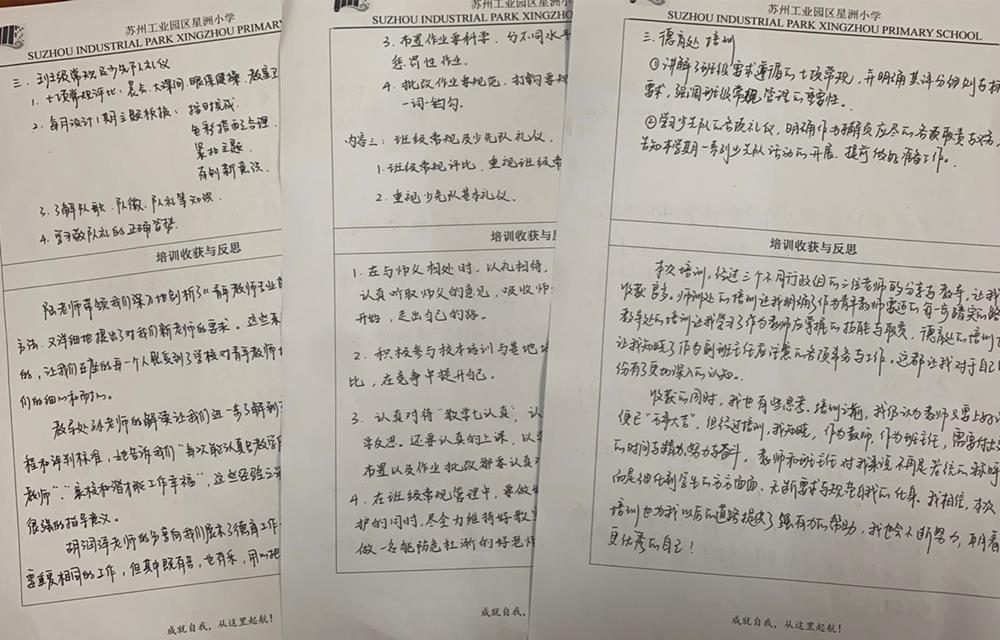 苏州工业园区星洲小学
SUZHOU INDUSTRIAL PARK XINGZHOU PRIMARY
三、班级常规及少先队礼仪
1. 七项常规评比：晨会、大课间、眼保健操、教室卫
2. 每月设计1期主题板报：按时完成
色彩搭配合理
紧扣主题
有创新意识
3. 了解队歌、队徽、队礼等知识
4. 学习敬队礼的正确姿势
培训收获与反思
陆老师带领我们深入地剖析了“青年教师专业
方法，又详细地提出了对我们新老师的要求。这些
的，让我们在座的每一个人感受到了学校对青年教师
们的细心和耐心。
教导处孙老师的解读让我们进一步了解到
程和评判标准，她告诉我们“每次能认真出教学
教师”、“家校和谐才能工作幸福”，这些经验之
很强的指导意义。
胡润泽老师的分享向我们展示了德育工作
要重复相同的工作，但其中既有苦，也有乐，用心把
成就自我，从这里起航！
苏州工业园区星洲小学
SUZHOU INDUSTRIAL PARK XINGZHO
3. 布置作业要科学，分不同水平
惩罚性作业。
4. 批改作业要规范，打钩要规
一词一钩。
内容三：班级常规及少先队礼仪
1. 班级常规评比，重视班级常
2. 重视少先队基本礼仪。
培训收获与反
1. 在与师父相处时，以礼相待，
认真听取师父的意见，吸收师
开始，走出自己的路。
2. 积极参与校本培训与基地
比，在竞争中提升自己。
3. 认真对待“教学七认真”，认
学反思。还要认真的上课，以
布置以及作业批改都要认真
4. 在班级常规管理中，要做
护的同时，尽全力维持好教
做一名能防危杜渐的好老师
成就自我，
苏州工业园区星洲小学
SUZHOU INDUSTRIAL PARK XINGZHOU PRIMARY SCHOOL
三、德育处培训
①讲解了班级需求遵循的七项常规，并明确其评分细则与标
要求，强调班级常规管理的重要性。
②学习少先队的各项礼仪，明确作为辅导员应尽的各项职责与义务，
告知本学期一系列少先队活动的开展，提前做好准备工作。
培训收获与反思
本次培训，经过三个不同行政组的三位老师的分享与教导，让我
收获良多。师训处的培训让我明确了作为青年教师要迈的每一步踏实的路
教导处的培训让我学习了作为教师应掌握的技能与职责。德育处的培训
让我知晓了作为副班主任应注意的各项事务与工作。这都让我对于自己
份有了更加深入的认知。
收获的同时，我也有些思考。培训之前，我仍认为教师只要上好
便已“万事大吉”，但经过培训，我知晓，作为教师，作为班主任，需要付出
的时间与精力、努力与奋斗。教师和班主任对我来说不再是若信的称呼
而是细化到学生的方方面面、无断要求与规范自我的化身。我相信，本次
培训也为我以后的道路提供了强有力的帮助，我也会不断努力，期待着
更优秀的自己！
成就自我，从这里起航！